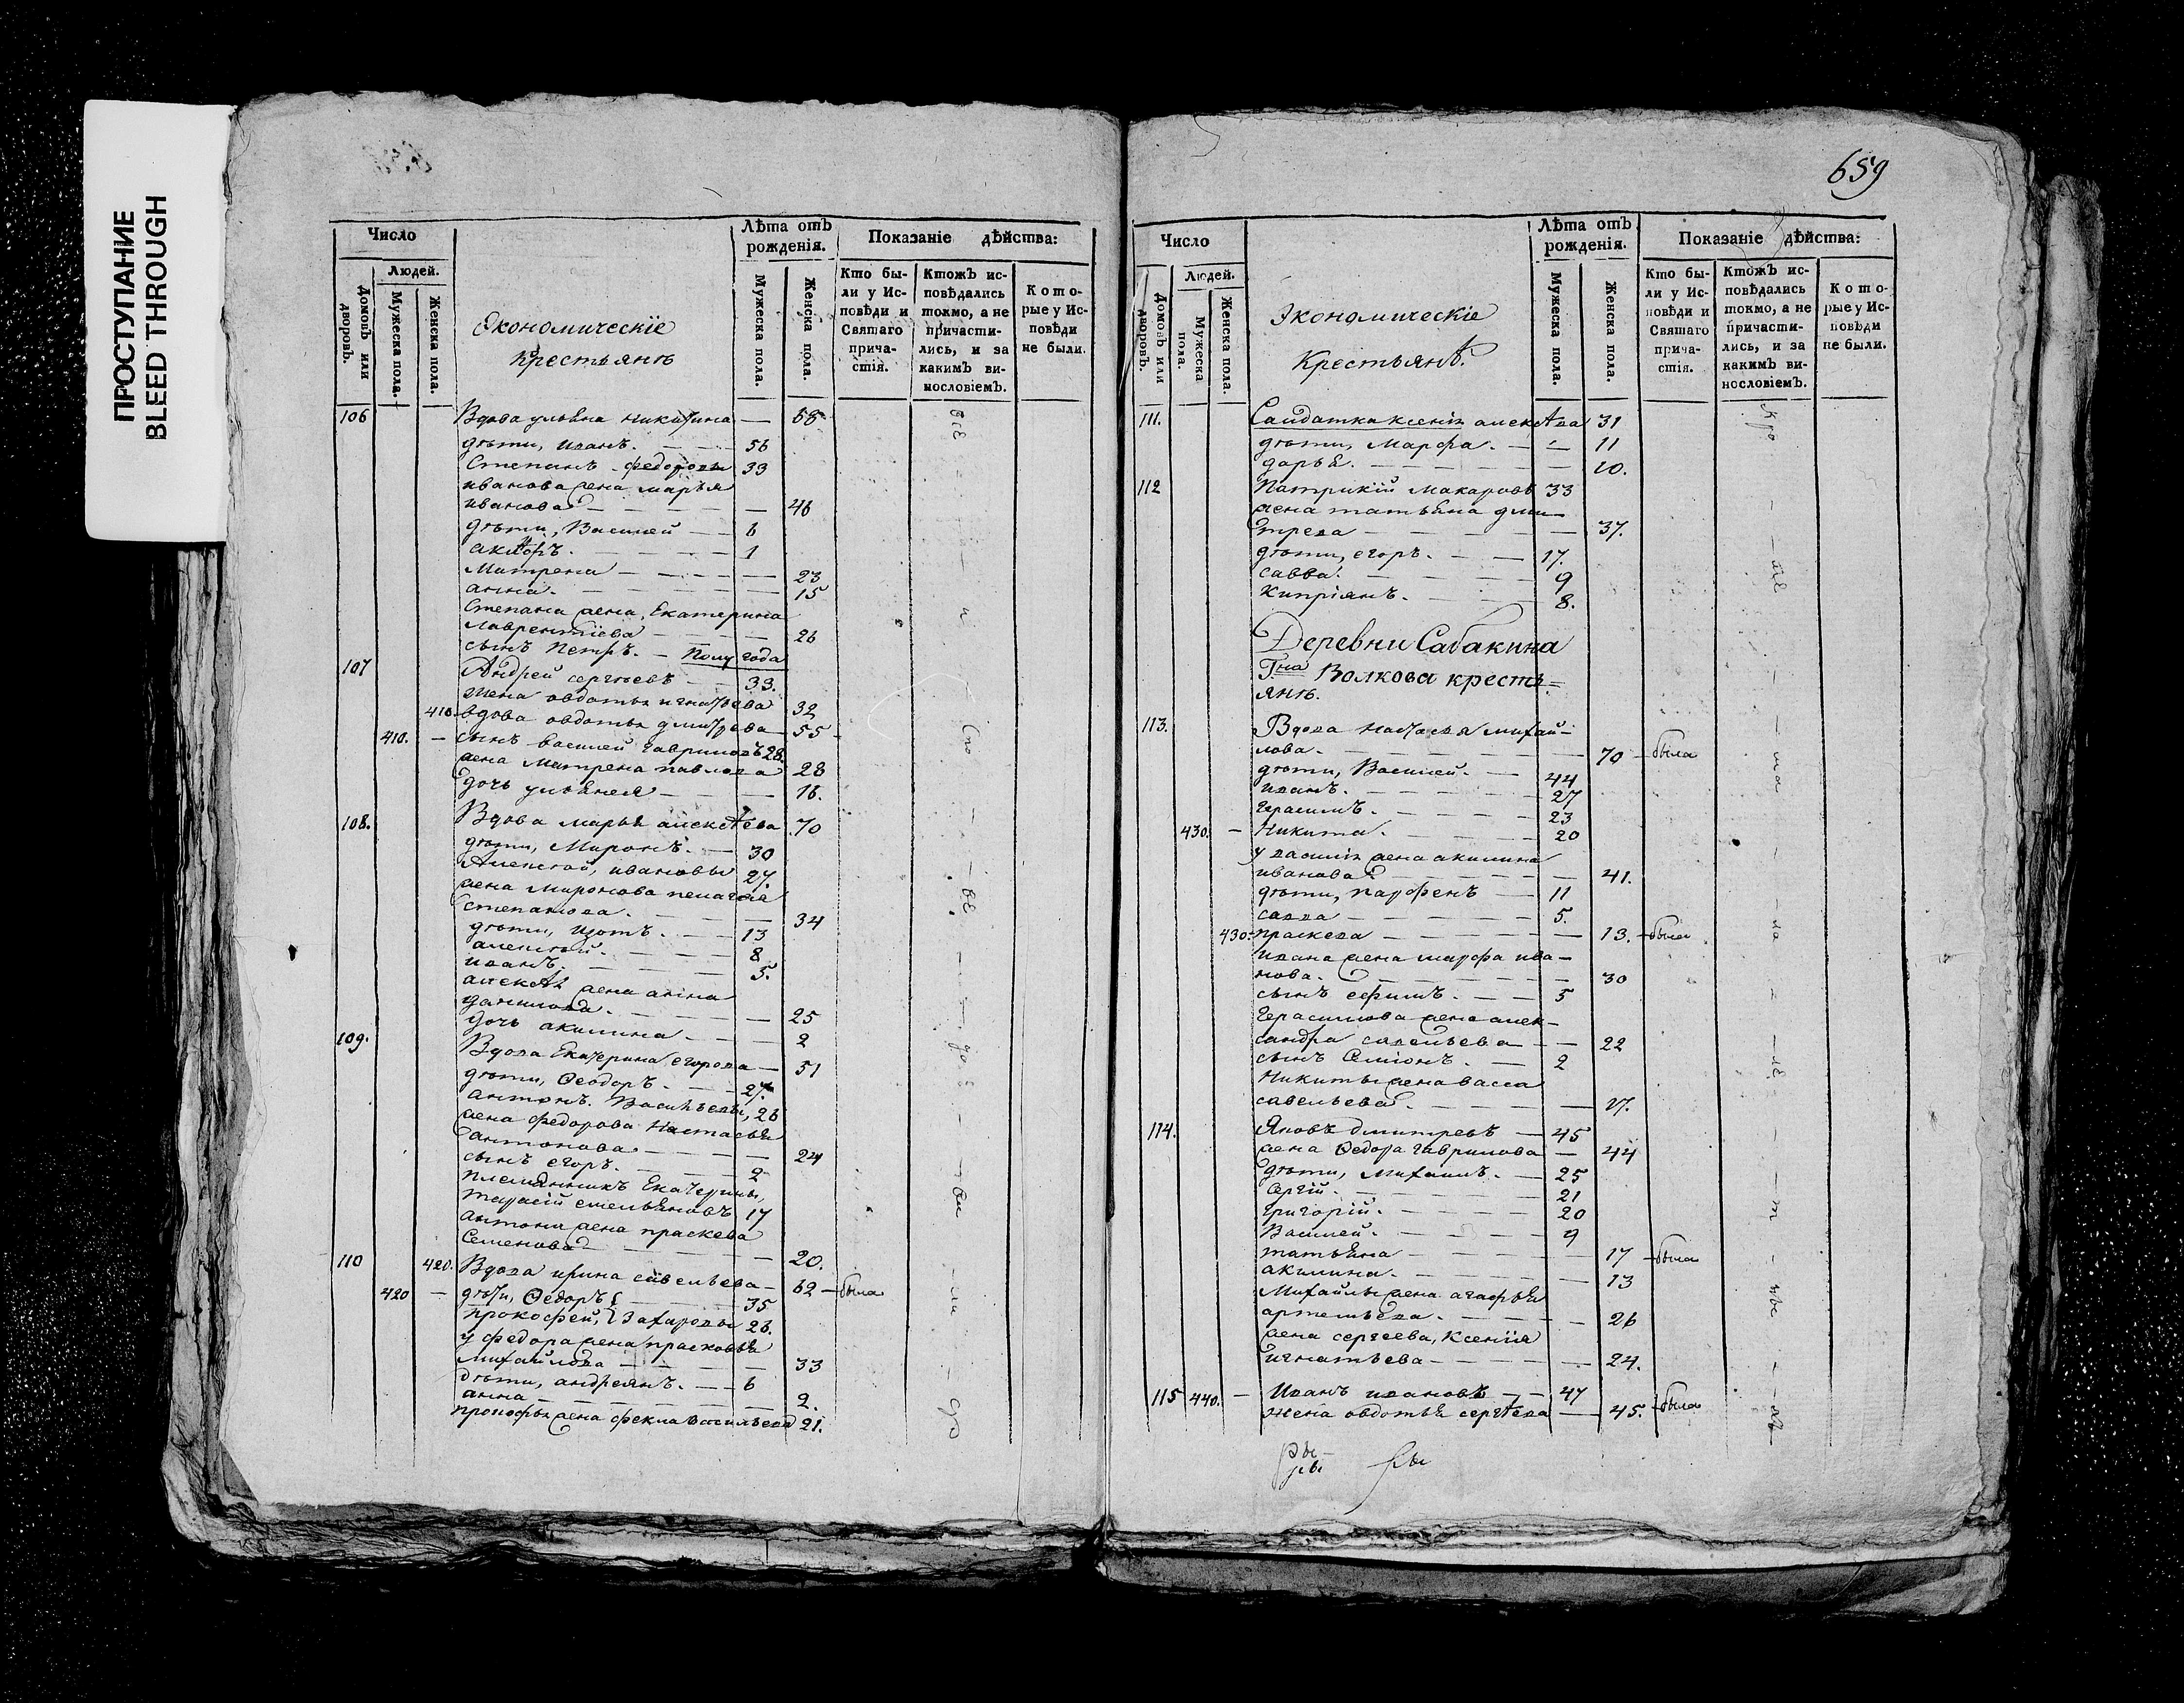 ПРОСТУПАНИЕ
BLEED THROUGH
Число
Людей.
Домовъ или дворовъ.
Мужеска пола.
Женска пола.
Экономическіе
Крестьянѣ
Лѣта отъ рожденія.
Мужеска пола.
Женска пола.
Показаніе дѣйства:
Кто были у Исповѣди и Святаго причастія.
Ктожъ исповѣдались токмо, а не причастились, и за какимъ винословіемъ.
Которые у Исповѣди не были.
106 Вдова ульяна никитина — 58
дѣти, иванъ. — 56
Степанъ федоровы 33
иванова жена марья
иванова — 46
дѣти, Василей — 6
— 1
Матрена — 23
анна — 15
Степана жена, Екатерина
лаврентіева — 26
сынъ Петръ. — полу года
107 Андрей сергѣевъ — 33.
жена овдотья игнатьева 32
410 вдова овдотья дмитрева — 55
410. — сынъ василей гавриловъ 28.
жена Матрена павлова 28
дочь ульянея — 16.
108. Вдова марья алексѣева 70
дѣти, Миронъ. — 30
Алексѣй, ивановы 27.
жена Миронова пелагея
степанова. — 34
дѣти, изотъ. — 13
алексѣй. — 8.
иванъ. — 5.
алексѣя жена анна
данилова. — 25
дочь акилина — 2
109. Вдова Екатерина егорова — 51
дѣти, Ѳеодоръ. — 27.
антонъ. Васильевы, 26
жена федорова Настасья
антонова — 24
сынъ егоръ. — 2
племянникъ Екатерины,
тарасій емельяновъ 17
антона жена праскева
Семенова — 20.
110 420. Вдова ирина савельева — 62 — была
420 — дѣти, Ѳедоръ — 35
прокофей, Захаровы 26.
у федора жена прасковья
михайлова — 33
дѣти, андреянъ. — 6
анна — 2.
прокофья жена фекла васильева 21.
659
Число
Людей.
Домовъ или дворовъ.
Мужеска пола.
Женска пола.
Экономическіе
Крестьянѣ.
Лѣта отъ рожденія.
Мужеска пола.
Женска пола.
Показаніе дѣйства:
Кто были у Исповѣди и Святаго причастія.
Ктожъ исповѣдались токмо, а не причастились, и за какимъ винословіемъ.
Которые у Исповѣди не были.
111. Салдатка ксенія алексѣева 31
дѣти, Марфа. — 11
дарья. — 10.
112 Патрикій макаровъ 33
жена татьяна дми-
трева — 37.
дѣти, егоръ. — 17.
савва. — 9
Кипріянъ. — 8.
Деревни Сабакина
Гна Волкова кресть=
янѣ.
113. Вдова настасья михай-
лова. — 70 — была
дѣти, Василей. — 44
иванъ. — 27
герасимъ. — 23
430. — Никита. — 20
у василія жена акилина
иванова — 41.
дѣти, парфенъ — 11
савва — 5.
430. праскева — 13. — была
ивана жена марфа ива-
нова. — 30
сынъ ефимъ. — 5
герасимова жена алек-
сандра савельева — 22
сынъ Симіонъ. — 2
Никиты жена васса
савельева. — 27.
114. Яковъ дмитревъ — 45
жена Ѳедора гаврилова — 44
дѣти, Михаилъ. — 25
Сергій. — 21
григорій. — 20
Василей. — 9
татьяна — 17 — была
акилина. — 13
Михайлы жена агафья
артемьева. — 26
жена сергеева, Ксенія
игнатьева — 24.
115 440. — Иванъ ивановъ — 47
жена овдотья сергѣева — 45. — была